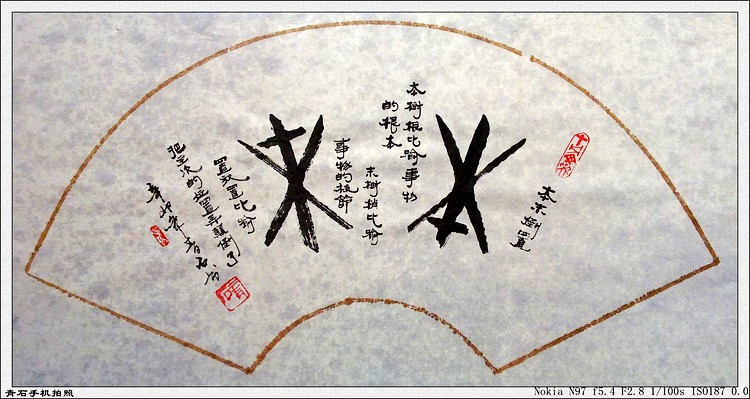 本末倒置
本
本树根比喻事物
的根本
末树梢比喻
事物的枝节
末
置放置比喻
把主次的位置弄颠倒了
辛卯年青石书
青石手机拍照
Nokia N97 f5.4 F2.8 1/100s ISO187 0.0